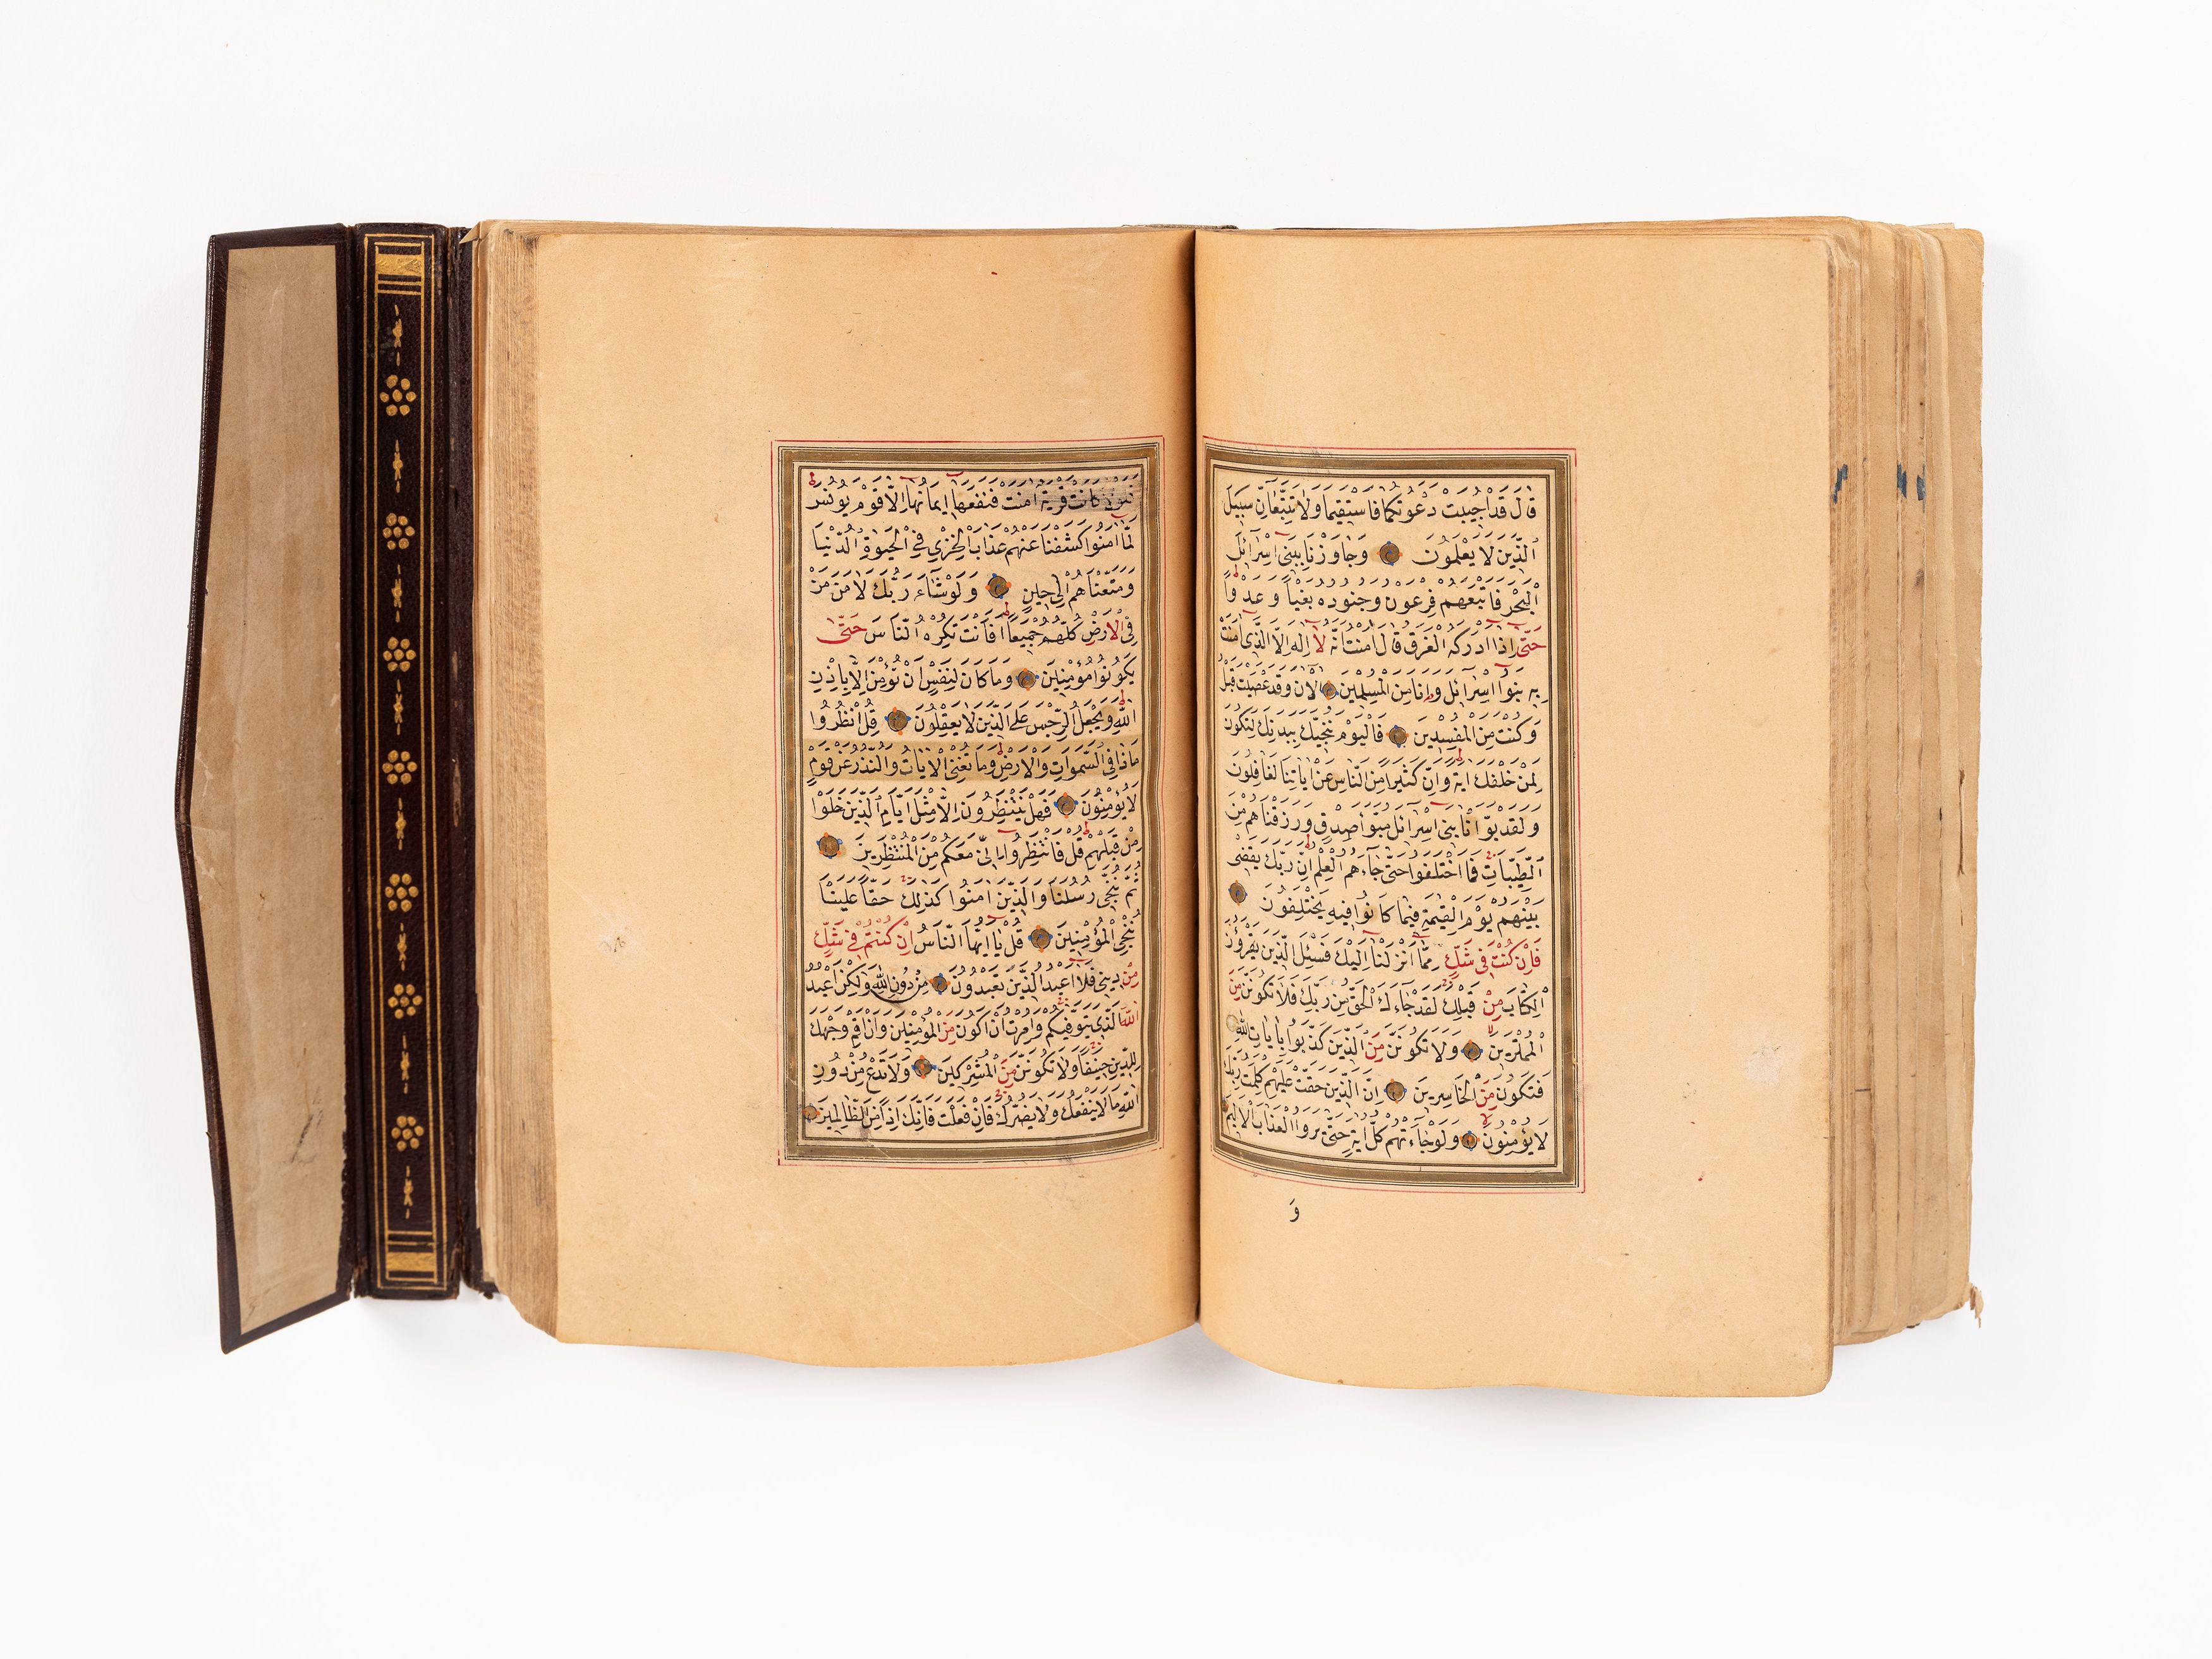 قَالَ قَدْ اُجِيبَتْ دَعْوَتُكُمَا فَاسْتَقِيمَا وَلَا تَتَّبِعَانِّ سَبِيلَ
الَّذِينَ لَا يَعْلَمُونَ وَجَاوَزْنَا بِبَنِى اِسْرَائِلَ
الْبَحْرَ فَاَتْبَعَهُمْ فِرْعَوْنُ وَجُنُودُهُ بَغْيًا وَعَدْوًا
حَتّٰى اِذَا اَدْرَكَهُ الْغَرَقُ قَالَ اٰمَنْتُ اَنَّهُ لَا اِلٰهَ اِلَّا الَّذِى اٰمَنَتْ
بِهِ بَنُوا اِسْرَائِلَ وَاَنَا مِنَ الْمُسْلِمِينَ اٰلْاٰنَ وَقَدْ عَصَيْتَ قَبْلُ
وَكُنْتَ مِنَ الْمُفْسِدِينَ فَالْيَوْمَ نُنَجِّيكَ بِبَدَنِكَ لِتَكُونَ
لِمَنْ خَلْفَكَ اٰيَةً وَاِنَّ كَثِيرًا مِنَ النَّاسِ عَنْ اٰيَاتِنَا لَغَافِلُونَ
وَلَقَدْ بَوَّأْنَا بَنِى اِسْرَائِلَ مُبَوَّاَ صِدْقٍ وَرَزَقْنَاهُمْ مِنَ
الطَّيِّبَاتِ فَمَا اخْتَلَفُوا حَتّٰى جَاءَهُمُ الْعِلْمُ اِنَّ رَبَّكَ يَقْضِى
بَيْنَهُمْ يَوْمَ الْقِيٰمَةِ فِيمَا كَانُوا فِيهِ يَخْتَلِفُونَ
فَاِنْ كُنْتَ فِى شَكٍّ مِمَّا اَنْزَلْنَا اِلَيْكَ فَسْئَلِ الَّذِينَ يَقْرَؤُنَ
الْكِتَابَ مِنْ قَبْلِكَ لَقَدْ جَاءَكَ الْحَقُّ مِنْ رَبِّكَ فَلَا تَكُونَنَّ مِنَ
الْمُمْتَرِينَ وَلَا تَكُونَنَّ مِنَ الَّذِينَ كَذَّبُوا بِاٰيَاتِ اللهِ
فَتَكُونَ مِنَ الْخَاسِرِينَ اِنَّ الَّذِينَ حَقَّتْ عَلَيْهِمْ كَلِمَتُ رَبِّكَ
لَا يُؤْمِنُونَ وَلَوْ جَاءَتْهُمْ كُلُّ اٰيَةٍ حَتّٰى يَرَوُا الْعَذَابَ الْاَلِيمَ
وَ
كَانَتْ قَرْيَةٌ اٰمَنَتْ فَنَفَعَهَا اِيمَانُهَا اِلَّا قَوْمَ يُونُسَ
لَمَّا اٰمَنُوا كَشَفْنَا عَنْهُمْ عَذَابَ الْخِزْىِ فِى الْحَيٰوةِ الدُّنْيَا
وَمَتَّعْنَاهُمْ اِلٰى حِينٍ وَلَوْ شَاءَ رَبُّكَ لَاٰمَنَ مَنْ
فِى الْاَرْضِ كُلُّهُمْ جَمِيعًا اَفَاَنْتَ تُكْرِهُ النَّاسَ حَتّٰى
يَكُونُوا مُؤْمِنِينَ وَمَا كَانَ لِنَفْسٍ اَنْ تُؤْمِنَ اِلَّا بِاِذْنِ
اللهِ وَيَجْعَلُ الرِّجْسَ عَلَى الَّذِينَ لَا يَعْقِلُونَ قُلِ انْظُرُوا
مَاذَا فِى السَّمٰوَاتِ وَالْاَرْضِ وَمَا تُغْنِى الْاٰيَاتُ وَالنُّذُرُ عَنْ قَوْمٍ
لَا يُؤْمِنُونَ فَهَلْ يَنْتَظِرُونَ اِلَّا مِثْلَ اَيَّامِ الَّذِينَ خَلَوْا
مِنْ قَبْلِهِمْ قُلْ فَانْتَظِرُوا اِنِّى مَعَكُمْ مِنَ الْمُنْتَظِرِينَ
ثُمَّ نُنَجِّى رُسُلَنَا وَالَّذِينَ اٰمَنُوا كَذٰلِكَ حَقًّا عَلَيْنَا
نُنْجِى الْمُؤْمِنِينَ قُلْ يَا اَيُّهَا النَّاسُ اِنْ كُنْتُمْ فِى شَكٍّ
مِنْ دِينِى فَلَا اَعْبُدُ الَّذِينَ تَعْبُدُونَ مِنْ دُونِ اللهِ وَلٰكِنْ اَعْبُدُ
اللهَ الَّذِى يَتَوَفّٰيكُمْ وَاُمِرْتُ اَنْ اَكُونَ مِنَ الْمُؤْمِنِينَ وَاَنْ اَقِمْ وَجْهَكَ
لِلدِّينِ حَنِيفًا وَلَا تَكُونَنَّ مِنَ الْمُشْرِكِينَ وَلَا تَدْعُ مِنْ دُونِ
اللهِ مَا لَا يَنْفَعُكَ وَلَا يَضُرُّكَ فَاِنْ فَعَلْتَ فَاِنَّكَ اِذًا مِنَ الظَّالِمِينَ